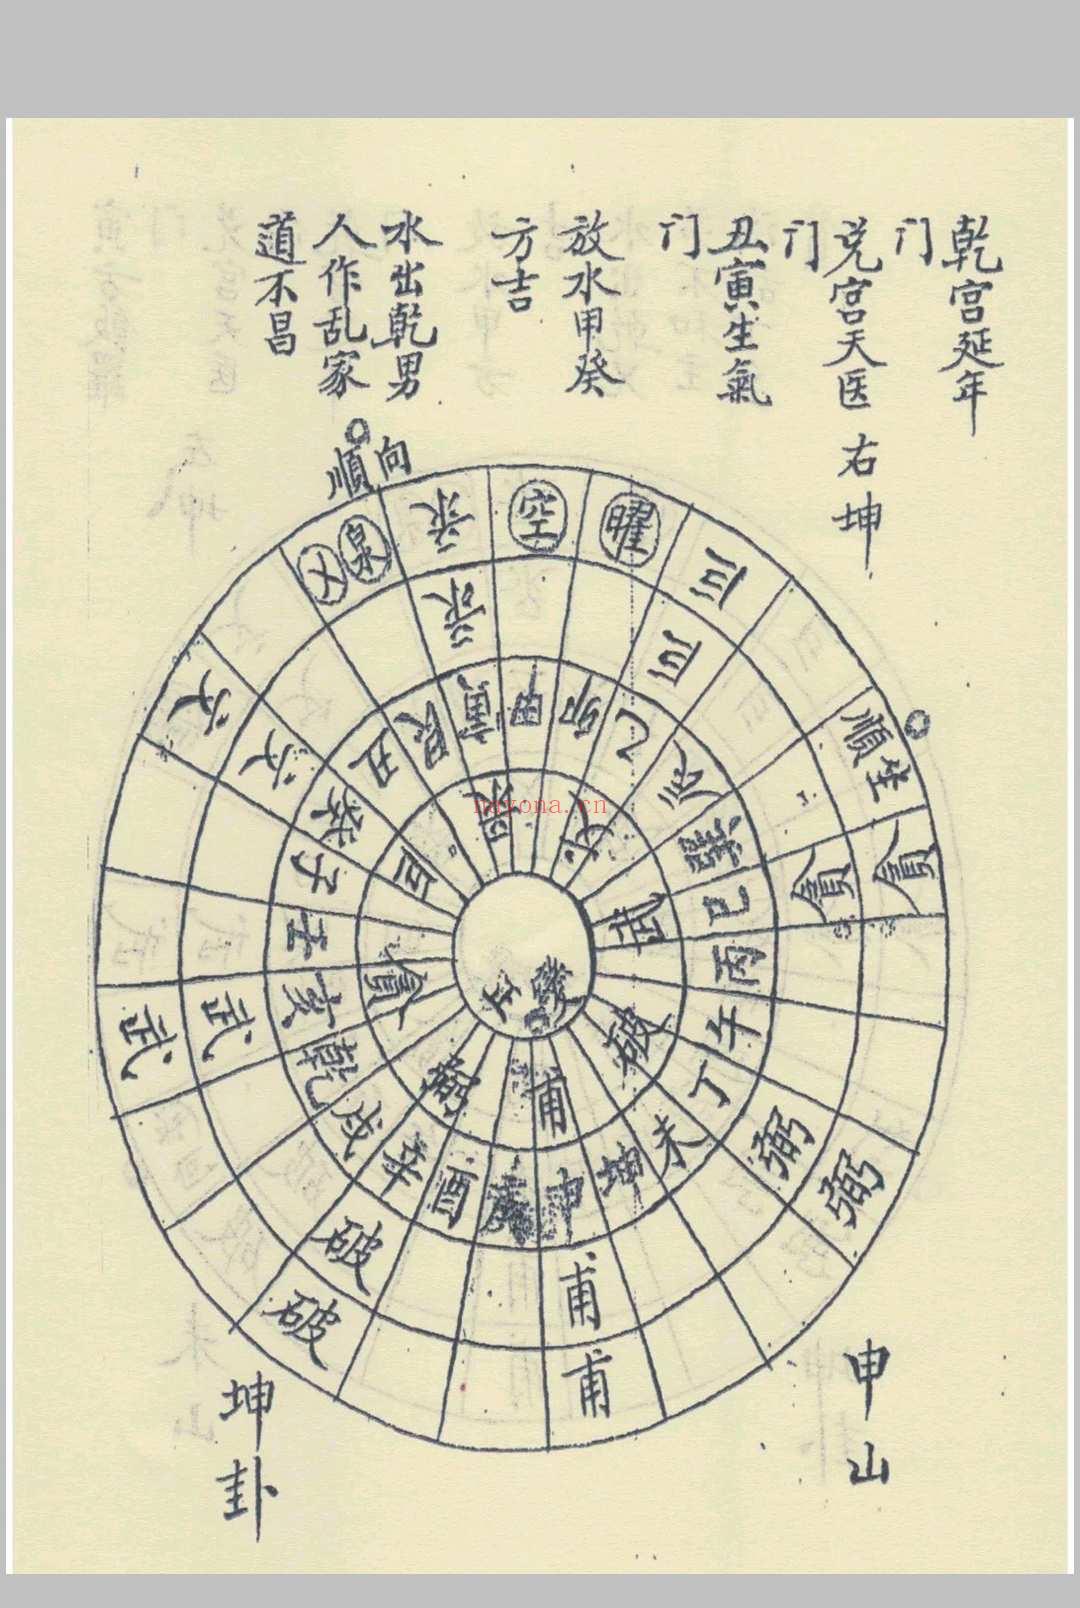 乾宫延年
门
兑宫天医 右坤
门
丑寅生氣
门
放水甲癸
方吉
水出乾男
人作乱家
道不昌
向
順
泉
文
录
空
曜
巨
順生
貪
貪
弼
弼
甫
甫
破
破
武
武
文
文
录
巨
丑
艮
寅
甲
卯
乙
辰
巽
巳
丙
午
丁
未
坤
申
庚
酉
辛
戌
乾
亥
壬
子
癸
武
破
甫
貪
巨
nayona.cn
申山
坤卦